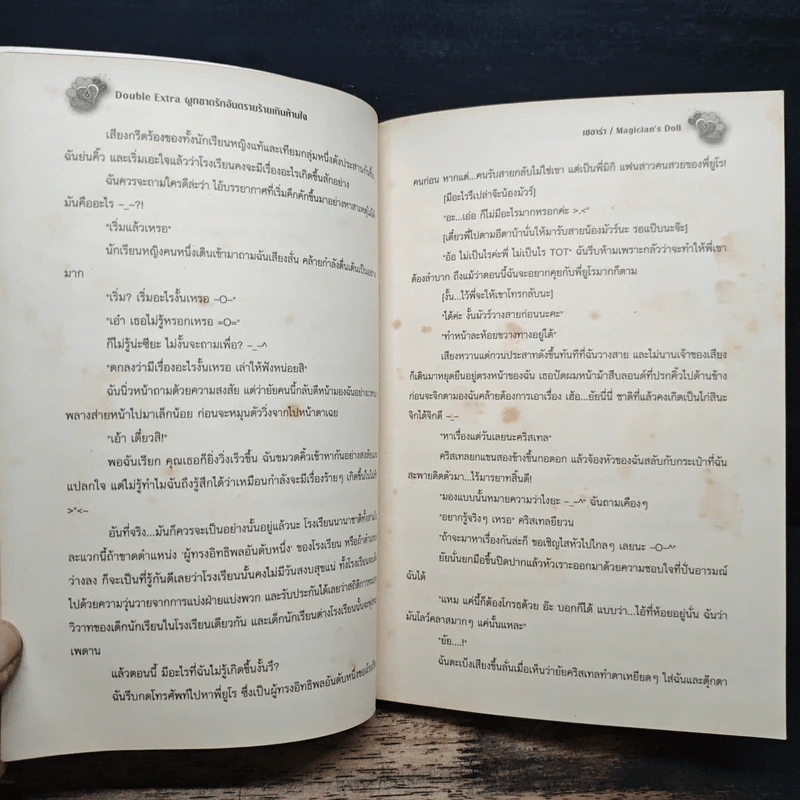 6
Double Extra ผูกขาดรักอันตรายร้ายเกินห้ามใจ
เสียงกรีดร้องของทั้งนักเรียนหญิงแท้และเทียมกลุ่มหนึ่งดังประสานกันขึ้น
ฉันย่นคิ้ว และเริ่มเอะใจแล้วว่าโรงเรียนคงจะมีเรื่องอะไรเกิดขึ้นสักอย่าง
ฉันควรจะถามใครดีล่ะว่า ไอ้บรรยากาศที่เริ่มคึกคักขึ้นมาอย่างหาสาเหตุไม่ได้
มันคืออะไร -_-?!
"เริ่มแล้วเหรอ"
นักเรียนหญิงคนหนึ่งเดินเข้ามาถามฉันเสียงสั่น คล้ายกำลังตื่นเต้นเป็นอย่าง
มาก
"เริ่ม? เริ่มอะไรงั้นเหรอ -O-"
"เอ๋า เธอไม่รู้หรอกเหรอ =O="
ก็ไม่รู้น่ะซียะ ไม่งั้นจะถามเพื่อ? -_-^
"ตกลงว่ามีเรื่องอะไรงั้นเหรอ เล่าให้ฟังหน่อยสิ"
ฉันนิ่วหน้าถามด้วยความสงสัย แต่ว่ายัยคนนี้กลับตีหน้ามองฉันอย่าง
พลางส่ายหน้าไปมาเล็กน้อย ก่อนจะหมุนตัววิ่งจากไปหน้าตาเฉย
"เอ้า เดี๋ยวสิ!"
พอฉันเรียก คุณเธอก็ยิ่งวิ่งเร็วขึ้น ฉันขมวดคิ้วเข้าหากันอย่างสงสัย
แปลกใจ แต่ไม่รู้ทำไมฉันถึงรู้สึกได้ว่าเหมือนกำลังจะมีเรื่องร้ายๆ เกิดขึ้น
>"<~
อันที่จริง...มันก็ควรจะเป็นอย่างนั้นอยู่แล้วนะ โรงเรียนนานาชาติทั้ง
ละแวกนี้ถ้าขาดตำแหน่ง 'ผู้ทรงอิทธิพลอันดับหนึ่ง' ของโรงเรียน หรือถ้าตำแหน่ง
ว่างลง ก็จะเป็นที่รู้กันดีเลยว่าโรงเรียนนั้นคงไม่มีวันสงบสุขแน่ ทั้งโรงเรียนจะ
ไปด้วยความวุ่นวายจากการแบ่งฝ่ายแบ่งพวก และรับประกันได้เลยว่าสถิติการทะเลาะ
วิวาทของเด็กนักเรียนในโรงเรียนเดียวกัน และเด็กนักเรียนต่างโรงเรียนนั้นจะพุ่ง
เพดาน
แล้วตอนนี้ มีอะไรที่ฉันไม่รู้เกิดขึ้นงั้นรึ?
ฉันรีบกดโทรศัพท์ไปหาพี่ยูโร ซึ่งเป็นผู้ทรงอิทธิพลอันดับหนึ่งของโรงเรียน
เฮอาร่า / Magician's Doll
7
คนก่อน หากแต่...คนรับสายกลับไม่ใช่เขา แต่เป็นพี่มิกิ แฟนสาวคนสวยของพี่ยูโร!
[มีอะไรรึเปล่าจ๊ะน้องมัวร์]
"อะ...เอ่อ ก็ไม่มีอะไรมากหรอกค่ะ >.<"
[เดี๋ยวพี่ไปตามอีตาบ้านั่นให้มารับสายน้องมัวร์นะ รอแป๊บนะจ๊ะ]
"อ้อ ไม่เป็นไรค่ะพี่ ไม่เป็นไร TOT" ฉันรีบห้ามเพราะกลัวว่าจะทำให้พี่เขา
ต้องลำบาก ถึงแม้ว่าตอนนี้ฉันจะอยากคุยกับพี่ยูโรมากก็ตาม
[งั้น...ไว้พี่จะให้เขาโทรกลับนะ]
"ได้ค่ะ งั้นมัวร์วางสายก่อนนะคะ"
"ทำหน้าละห้อยขวางทางอยู่ได้"
เสียงหวานแต่กวนประสาทดังขึ้นทันทีที่ฉันวางสาย และไม่นานเจ้าของเสียง
ก็เดินมาหยุดยืนอยู่ตรงหน้าของฉัน เธอปัดผมหน้าม้าสีบลอนด์ที่ปรกคิ้วไปด้านข้าง
ก่อนจะจิกตามองฉันคล้ายต้องการเอาเรื่อง เฮ้อ...ยัยนี่นี่ ชาติที่แล้วคงเกิดเป็นไก่สินะ
จิกได้จิกดี -_-
"หาเรื่องแต่วันเลยนะคริสเทล"
คริสเทลยกแขนสองข้างขึ้นกอดอก แล้วจ้องหัวของฉันสลับกับกระเป๋าที่ฉัน
สะพายติดตัวมา...ไร้มารยาทสิ้นดี!
"มองแบบนั้นหมายความว่าไงยะ -_-^" ฉันถามเคืองๆ
"อยากรู้จริงๆ เหรอ" คริสเทลยียวน
"ถ้าจะมาหาเรื่องกันล่ะก็ ขอเชิญไสหัวไปไกลๆ เลยนะ -O-^"
ยัยนั่นยกมือขึ้นปิดปากแล้วหัวเราะออกมาด้วยความชอบใจที่ปั่นอารมณ์
ฉันได้
"แหม แค่นี้ก็ต้องโกรธด้วย อ๊ะ บอกก็ได้ แบบว่า...ไอ้ที่ห้อยอยู่นั่น ฉันว่า
มันโลว์คลาสมากๆ แค่นั้นแหละ"
"ยัย....!"
ฉันตะเบ็งเสียงขึ้นลั่นเมื่อเห็นว่ายัยคริสเทลทำตาเหยียดๆ ใส่ฉันและตุ๊กตา